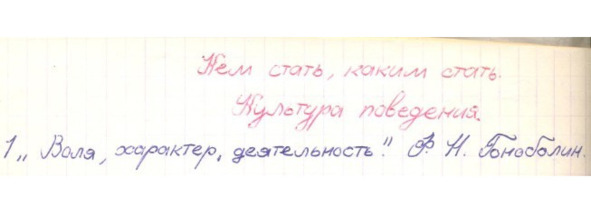 Кем стать, каким стать.
Культура поведения.
1 „ Воля, характер, деятельность." Ф. Н. Гоноболин.